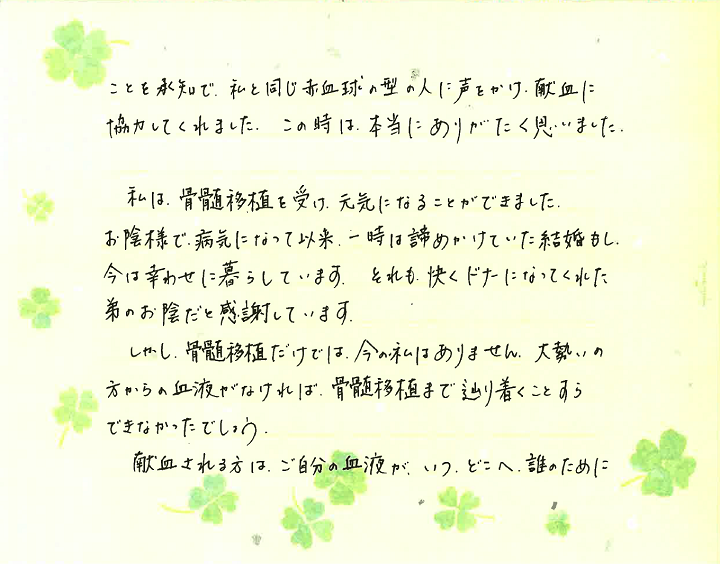 ことを承知で、私と同じ赤血球の型の人に声をかけ、献血に
協力してくれました。この時は、本当にありがたく思いました。
私は、骨髄移植を受け、元気になることができました。
お陰様で、病気になって以来、一時は諦めかけていた結婚もし、
今は幸わせに暮らしています。それも、快くドナーになってくれた
弟のお陰だと感謝しています。
しかし、骨髄移植だけでは、今の私はありません。大勢いの
方からの血液がなければ、骨髄移植まで辿り着くことすら
できなかったでしょう。
献血される方は、ご自分の血液が、いつ、どこへ、誰のために